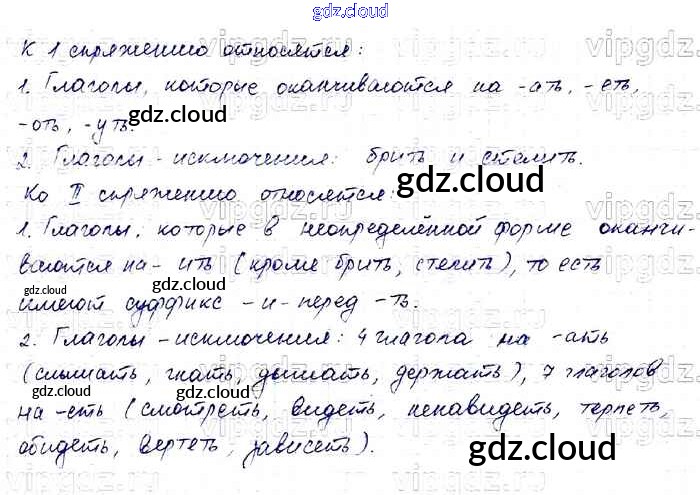 gdz.cloud
К 1 спряжению относятся:
1. Глаголы, которые оканчиваются на -ать, -еть,
-оть, -уть.
2. Глаголы - исключения: брить и стелить.
Ко II спряжению относятся:
1. Глаголы, которые в неопределённой форме оканчи-
ваются на - ить (кроме брить, стелить), то есть
имеют суффикс -и- перед -ть.
2. Глаголы - исключения: 4 глагола на -ать
(слышать, гнать, дышать, держать), 7 глаголов
на -еть (смотреть, видеть, ненавидеть, терпеть,
обидеть, вертеть, зависеть).
gdz.cloud
gdz.cloud
gdz.cloud
gdz.cloud
gdz.cloud
gdz.cloud
gdz.cloud
vipgdz
vipgdz